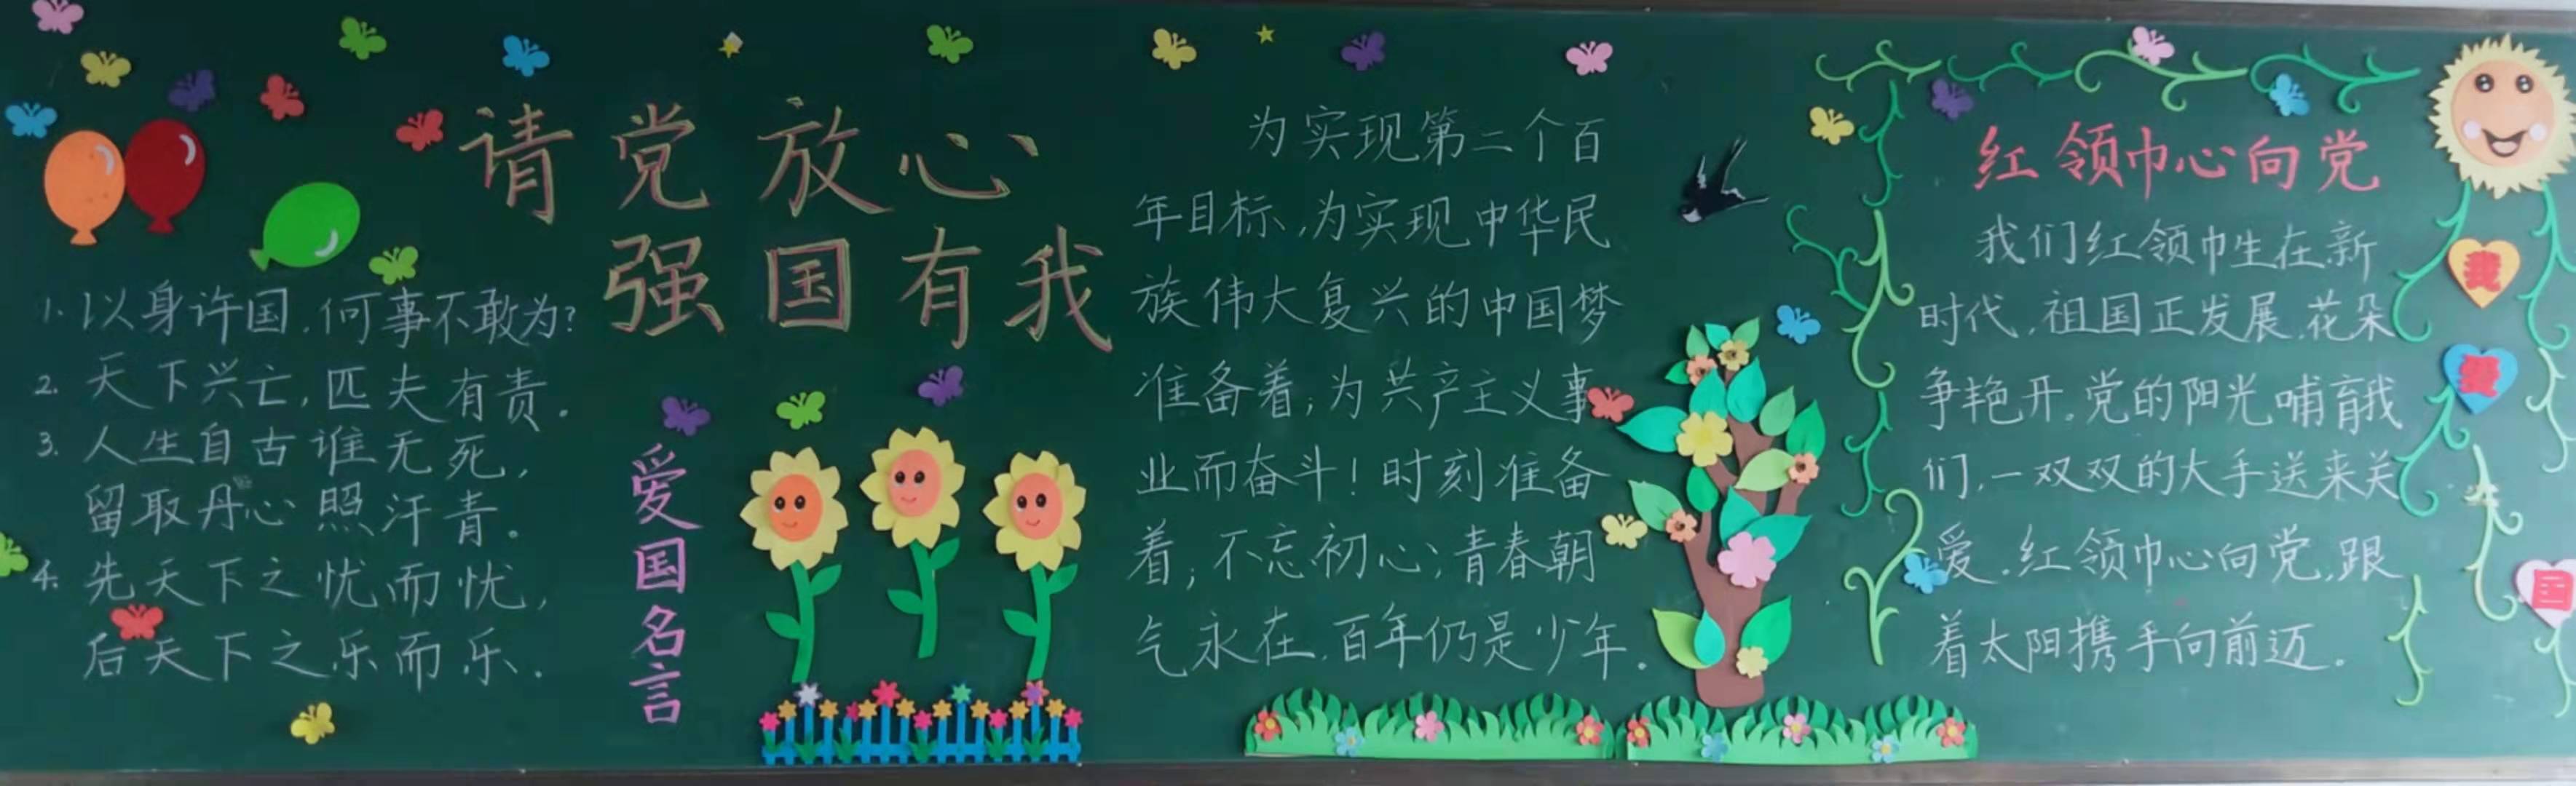 请党放心
强国有我
1.以身许国，何事不敢为？
2.天下兴亡，匹夫有责。
3.人生自古谁无死，
留取丹心照汗青。
4.先天下之忧而忧，
后天下之乐而乐．
爱国名言
为实现第二个百
年目标，为实现中华民
族伟大复兴的中国梦
准备着；为共产主义事
业而奋斗！时刻准备
着；不忘初心；青春朝
气永在，百年仍是少年．
红领巾心向党
我们红领巾生在新
时代，祖国正发展，花朵
争艳开，党的阳光哺育我
们，一双双的大手送来关
爱．红领巾心向党，跟
着太阳携手向前迈．
我
爱
国